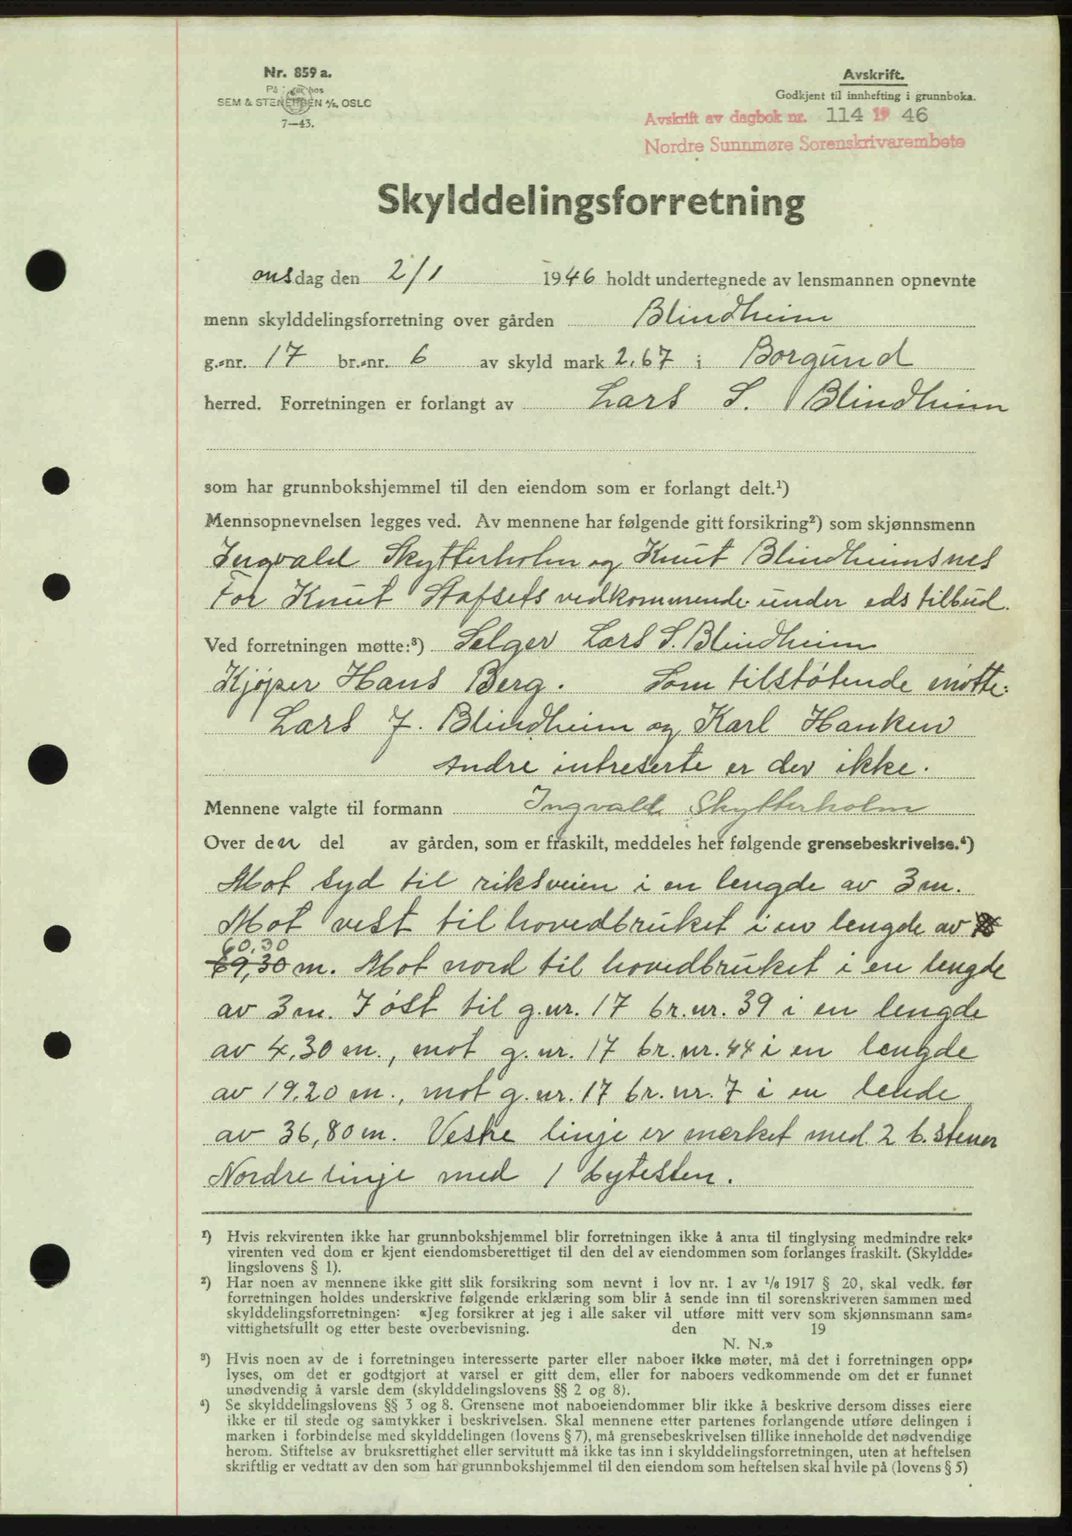 Nr. 859 a.
På
SEM & STENERSEN A/S, OSLO
7—43.
Avskrift.
Godkjent til innhefting i grunnboka.
Avskrift av dagbok nr. 114 19 46
Nordre Sunnmøre Sorenskrivarembete
Skylddelingsforretning
onsdag den 2/1 1946 holdt undertegnede av lensmannen opnevnte
menn skylddelingsforretning over gården Blindheim
g.-nr. 17 br.-nr. 6 av skyld mark 2,67 i Borgund
herred. Forretningen er forlangt av Lars S. Blindheim
som har grunnbokshjemmel til den eiendom som er forlangt delt.¹)
Mennsopnevnelsen legges ved. Av mennene har følgende gitt forsikring²) som skjønnsmenn
Ingvald Skytterholm og Knut Blindheimsnes
For Knut Stafsets vedkommende under eds tilbud.
Ved forretningen møtte:³) Selger Lars S. Blindheim
Kjøper Hans Berg. Som tilstøtende møtte:
Lars J. Blindheim og Karl Hanken
Andre intreserte er der ikke.
Mennene valgte til formann Ingvald Skytterholm
Over den del av gården, som er fraskilt, meddeles her følgende grensebeskrivelse.⁴)
Mot syd til riksveien i en lengde av 3 m.
Mot vest til hovedbruket i en lengde av
60,30
69,30 m. Mot nord til hovedbruket i en lengde
av 3 m. I øst til g.nr. 17 br.nr. 39 i en lengde
av 4,30 m., mot g.nr. 17 br.nr. 44 i en lengde
av 19,20 m., mot g.nr. 17 br.nr. 7 i en lende
av 36,80 m. Vestre linje er merket med 2 b.stener
Nordre linje med 1 bytesten.
¹) Hvis rekvirenten ikke har grunnbokshjemmel blir forretningen ikke å anta til tinglysing medmindre rek-
virenten ved dom er kjent eiendomsberettiget til den del av eiendommen som forlanges fraskilt. (Skyldde-
lingslovens § 1).
²) Har noen av mennene ikke gitt slik forsikring som nevnt i lov nr. 1 av ¹/₈ 1917 § 20, skal vedk. før
forretningen holdes underskrive følgende erklæring som blir å sende inn til sorenskriveren sammen med
skylddelingsforretningen: «Jeg forsikrer at jeg i alle saker vil utføre mitt verv som skjønnsmann sam-
vittighetsfullt og etter beste overbevisning. den 19
N. N.»
³) Hvis noen av de i forretningen interesserte parter eller naboer ikke møter, må det i forretningen opp-
lyses, om det er godtgjort at varsel er gitt dem, eller for naboers vedkommende om det er funnet
unødvendig å varsle dem (skylddelingslovens §§ 2 og 8).
⁴) Se skylddelingslovens §§ 3 og 8. Grensene mot naboeiendommer blir ikke å beskrive dersom disses eiere
ikke er til stede og samtykker i beskrivelsen. Skal mennene etter partenes forlangende utføre delingen i
marken i forbindelse med skylddelingen (lovens § 7), må grensebeskrivelsen tillike inneholde det nødvendige
herom. Stiftelse av bruksrettighet eller servitutt må ikke tas inn i skylddelingsforretningen, uten at heftelsen
skriftlig er vedtatt av den som har grunnbokshjemmel til den eiendom som heftelsen skal hvile på (lovens § 5)